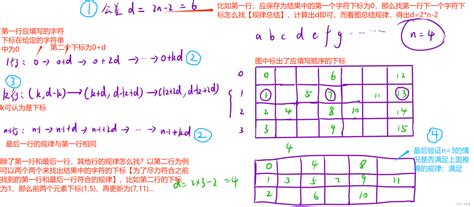 ① 公差 d = 2n-2 = 6
比如第一行，应保存为结果中的第一个字符下标为0，那么找第一行下一个字符下标怎么找【规律总结】，计算出d即可，而看图总结规律，得出d=2*n-2
第一行应填写的字符
下标在给定的字符串
中为0
第二个下标为0+d
1行: 0 → 0+d → 0+2d → … → 0+kd ②
a b c d e f g … n=4
图中标出了应填写顺序的下标
③
k行: (k, d-k) → (k+d, d-k+d) → (k+2d, d-k+2d) ②
k可认为是下标
n行: n-1 → n-1+d → n-1+2d → … n-1+kd ②
最后一行的规律与第一行相同
0 6 12
1 5 7 11 13
2 4 8 10 14
3 9 15
④
最后验证n=3的情
况是否满足上面推
得的规律：满足
除了第一行和最后一行，其他行的规律怎么找？以第二行为例
可以两个两个来找出结果中的字符的下标【为了尽力符合之前
找到的第一行和最后一行符合的规律】，比如第二行的下标
为1，那么前两个元素下标(1,5)，再更新为(7,11)...
d = 2×3-2 = 4
0 4 8
1 3 5 7 9
2 6 10